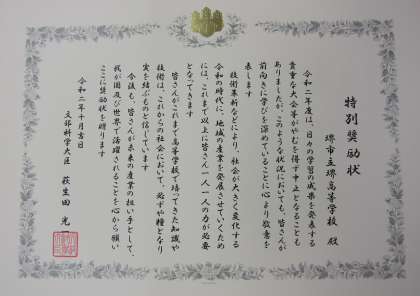 特別奨励状
堺市立堺高等学校 殿
令和二年度は、日々の学習の成果を発表する
貴重な大会等がやむを得ず中止となることも
ありましたが、このような状況においても、皆さんが
前向きに学びを深めていることに心より敬意を
表します
技術革新などにより、社会が大きく変化する
令和の時代に、地域の産業を発展させていくため
には、これまで以上に皆さん一人一人の力が必要
となってきます
皆さんがこれまで高等学校で培ってきた知識や
技術は、これからの社会において、必ずや糧となり
実を結ぶものと信じています
今後も、皆さんが未来の産業の担い手として、
我が国及び世界で活躍されることを心から願い
ここに奨励状を贈ります
令和二年十月吉日
文部科学大臣 萩生田 光一